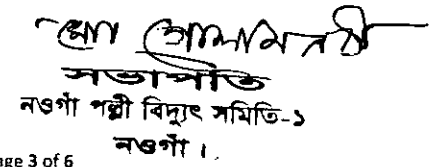 মোঃ গোলাম নবী
সভাপতি
নওগাঁ পল্লী বিদ্যুৎ সমিতি-১
নওগাঁ।
age 3 of 6